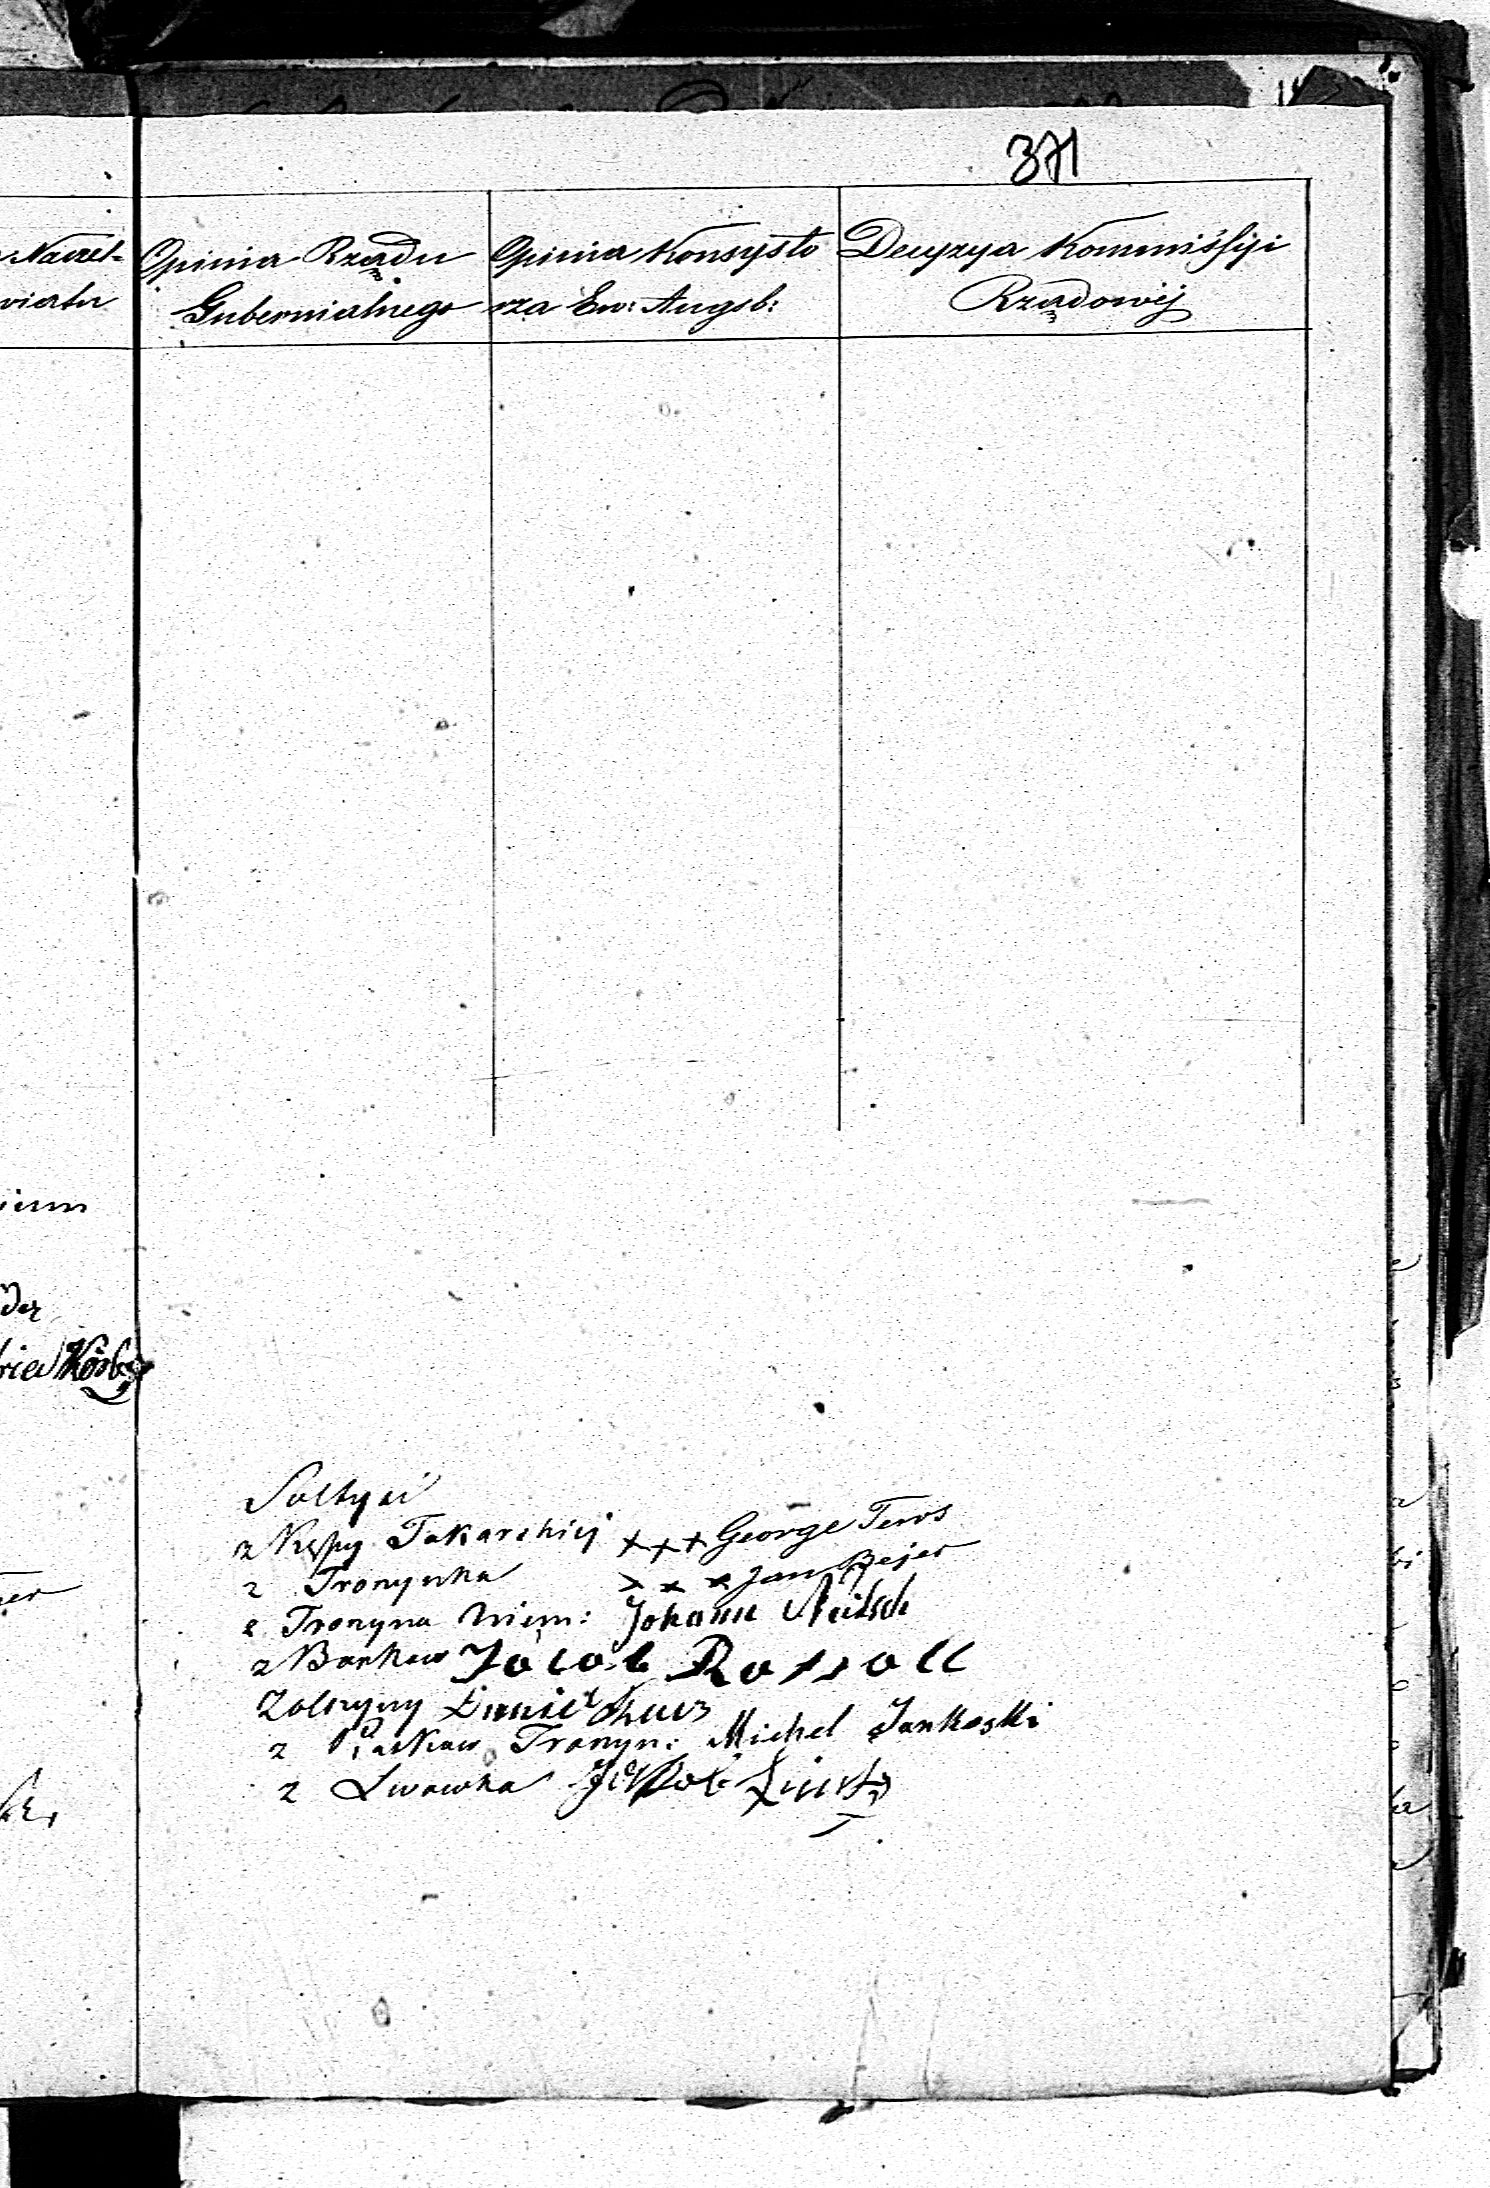 371
Naczel-
wiatu
Opinia Rządu
Gubernialnego
Opinia Konsysto
rza Ew: Augsb:
Decyzya Kommissyi
Rządowéj
Sołtysi
z Kępy Tokarskiej +++ George Tews
z Troszynka +++ Jan Bejer
z Troszyna Niem: Johann Neitsch
z Borkow Jacob Rossoll
Daniel
z Piaskow Troszyn: Michel Jankoski
z Lwowka